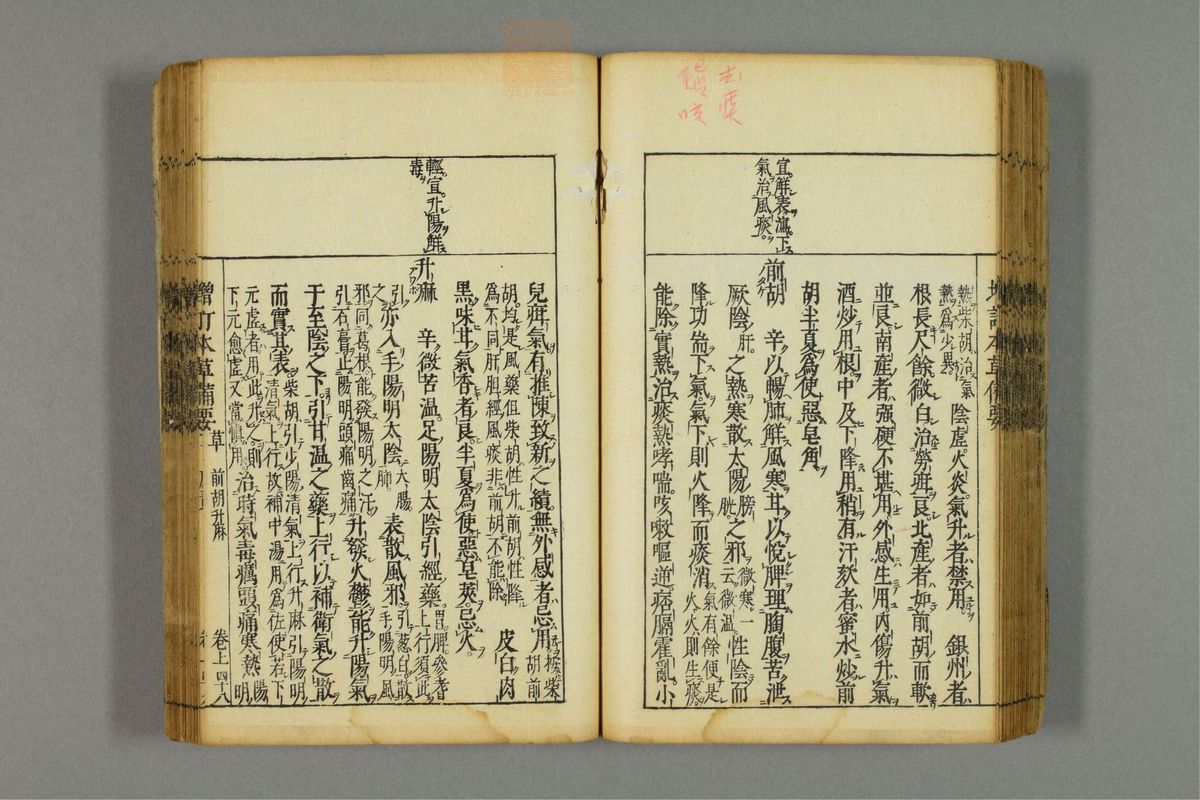 去痰
咳
宜解表瀉下
氣治風痰
熱柴胡治氣
熱爲少異
陰虛火炎氣升者禁用 銀州者
根長尺餘微白治勞疳良北產者如前胡而軟
並良南產者强硬不堪用外感生用内傷升氣
酒炒用根中及下降用稍有汗欬者蜜水炒前
胡半夏爲使惡皂角
前胡 辛以暢肺解風寒甘以悅脾理胸腹苦泄
厥陰肝之熱寒散太陽膀胱之邪微寒一云微溫性陰而
降功耑下氣氣下則火降而痰消氣有餘便是火火則生痰
能除實熱治痰熱哮喘咳嗽嘔逆痞膈霍亂小
輕宜升陽解
毒
兒疳氣有推陳致新之績無外感者忌用按柴胡前
胡均是風藥但柴胡性升前胡性降
爲不同肝胆經風痰非前胡不能除 皮白肉
黑味甘氣香者良半夏爲使惡皂莢忌火
升麻 辛微苦溫足陽明太陰引經藥胃脾參芪上行須此
引之亦入手陽明太陰大腸肺表散風邪引葱白散手陽明風
邪同葛根能發陽明之汗
引石膏止陽明頭痛齒痛升發火鬱能升陽氣
于至陰之下引甘溫之藥上行以補衛氣之散
而實其表柴胡引少陽清氣上行升麻引陽明清氣上行故補中湯用爲佐使若下
元虛者用此升之則
下元愈虛又當慎用治時氣毒癘頭痛寒熱陽明
增訂本草備要
草 前胡升麻
卷上四十八